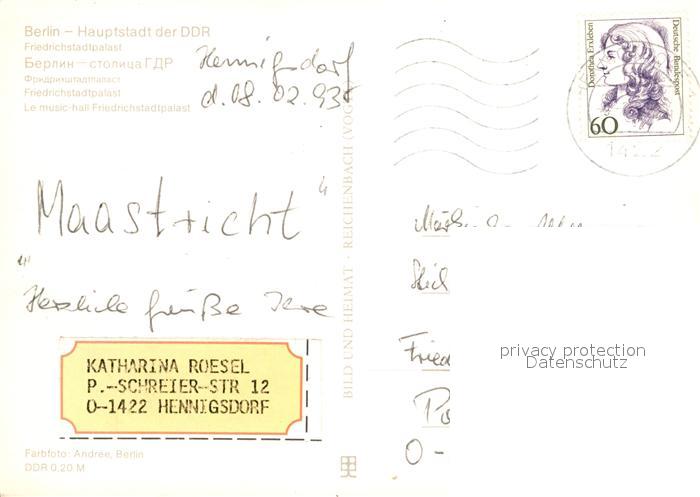 Berlin – Hauptstadt der DDR
Friedrichstadtpalast
Берлин – столица ГДР
Фридрихштадтпаласт
Friedrichstadtpalast
Le music-hall Friedrichstadtpalast
Hennigsdorf
d. 08. 02. 93
Maastricht
Herzliche Grüße Ihre
KATHARINA ROESEL
P.-SCHREIER-STR 12
O-1422 HENNIGSDORF
Farbfoto: Andrée, Berlin
DDR 0,20 M
BILD UND HEIMAT · REICHENBACH (VOGTL
Dorothea Erxleben
Deutsche Bundespost
60
1422
Fried
O -
privacy protection
Datenschutz